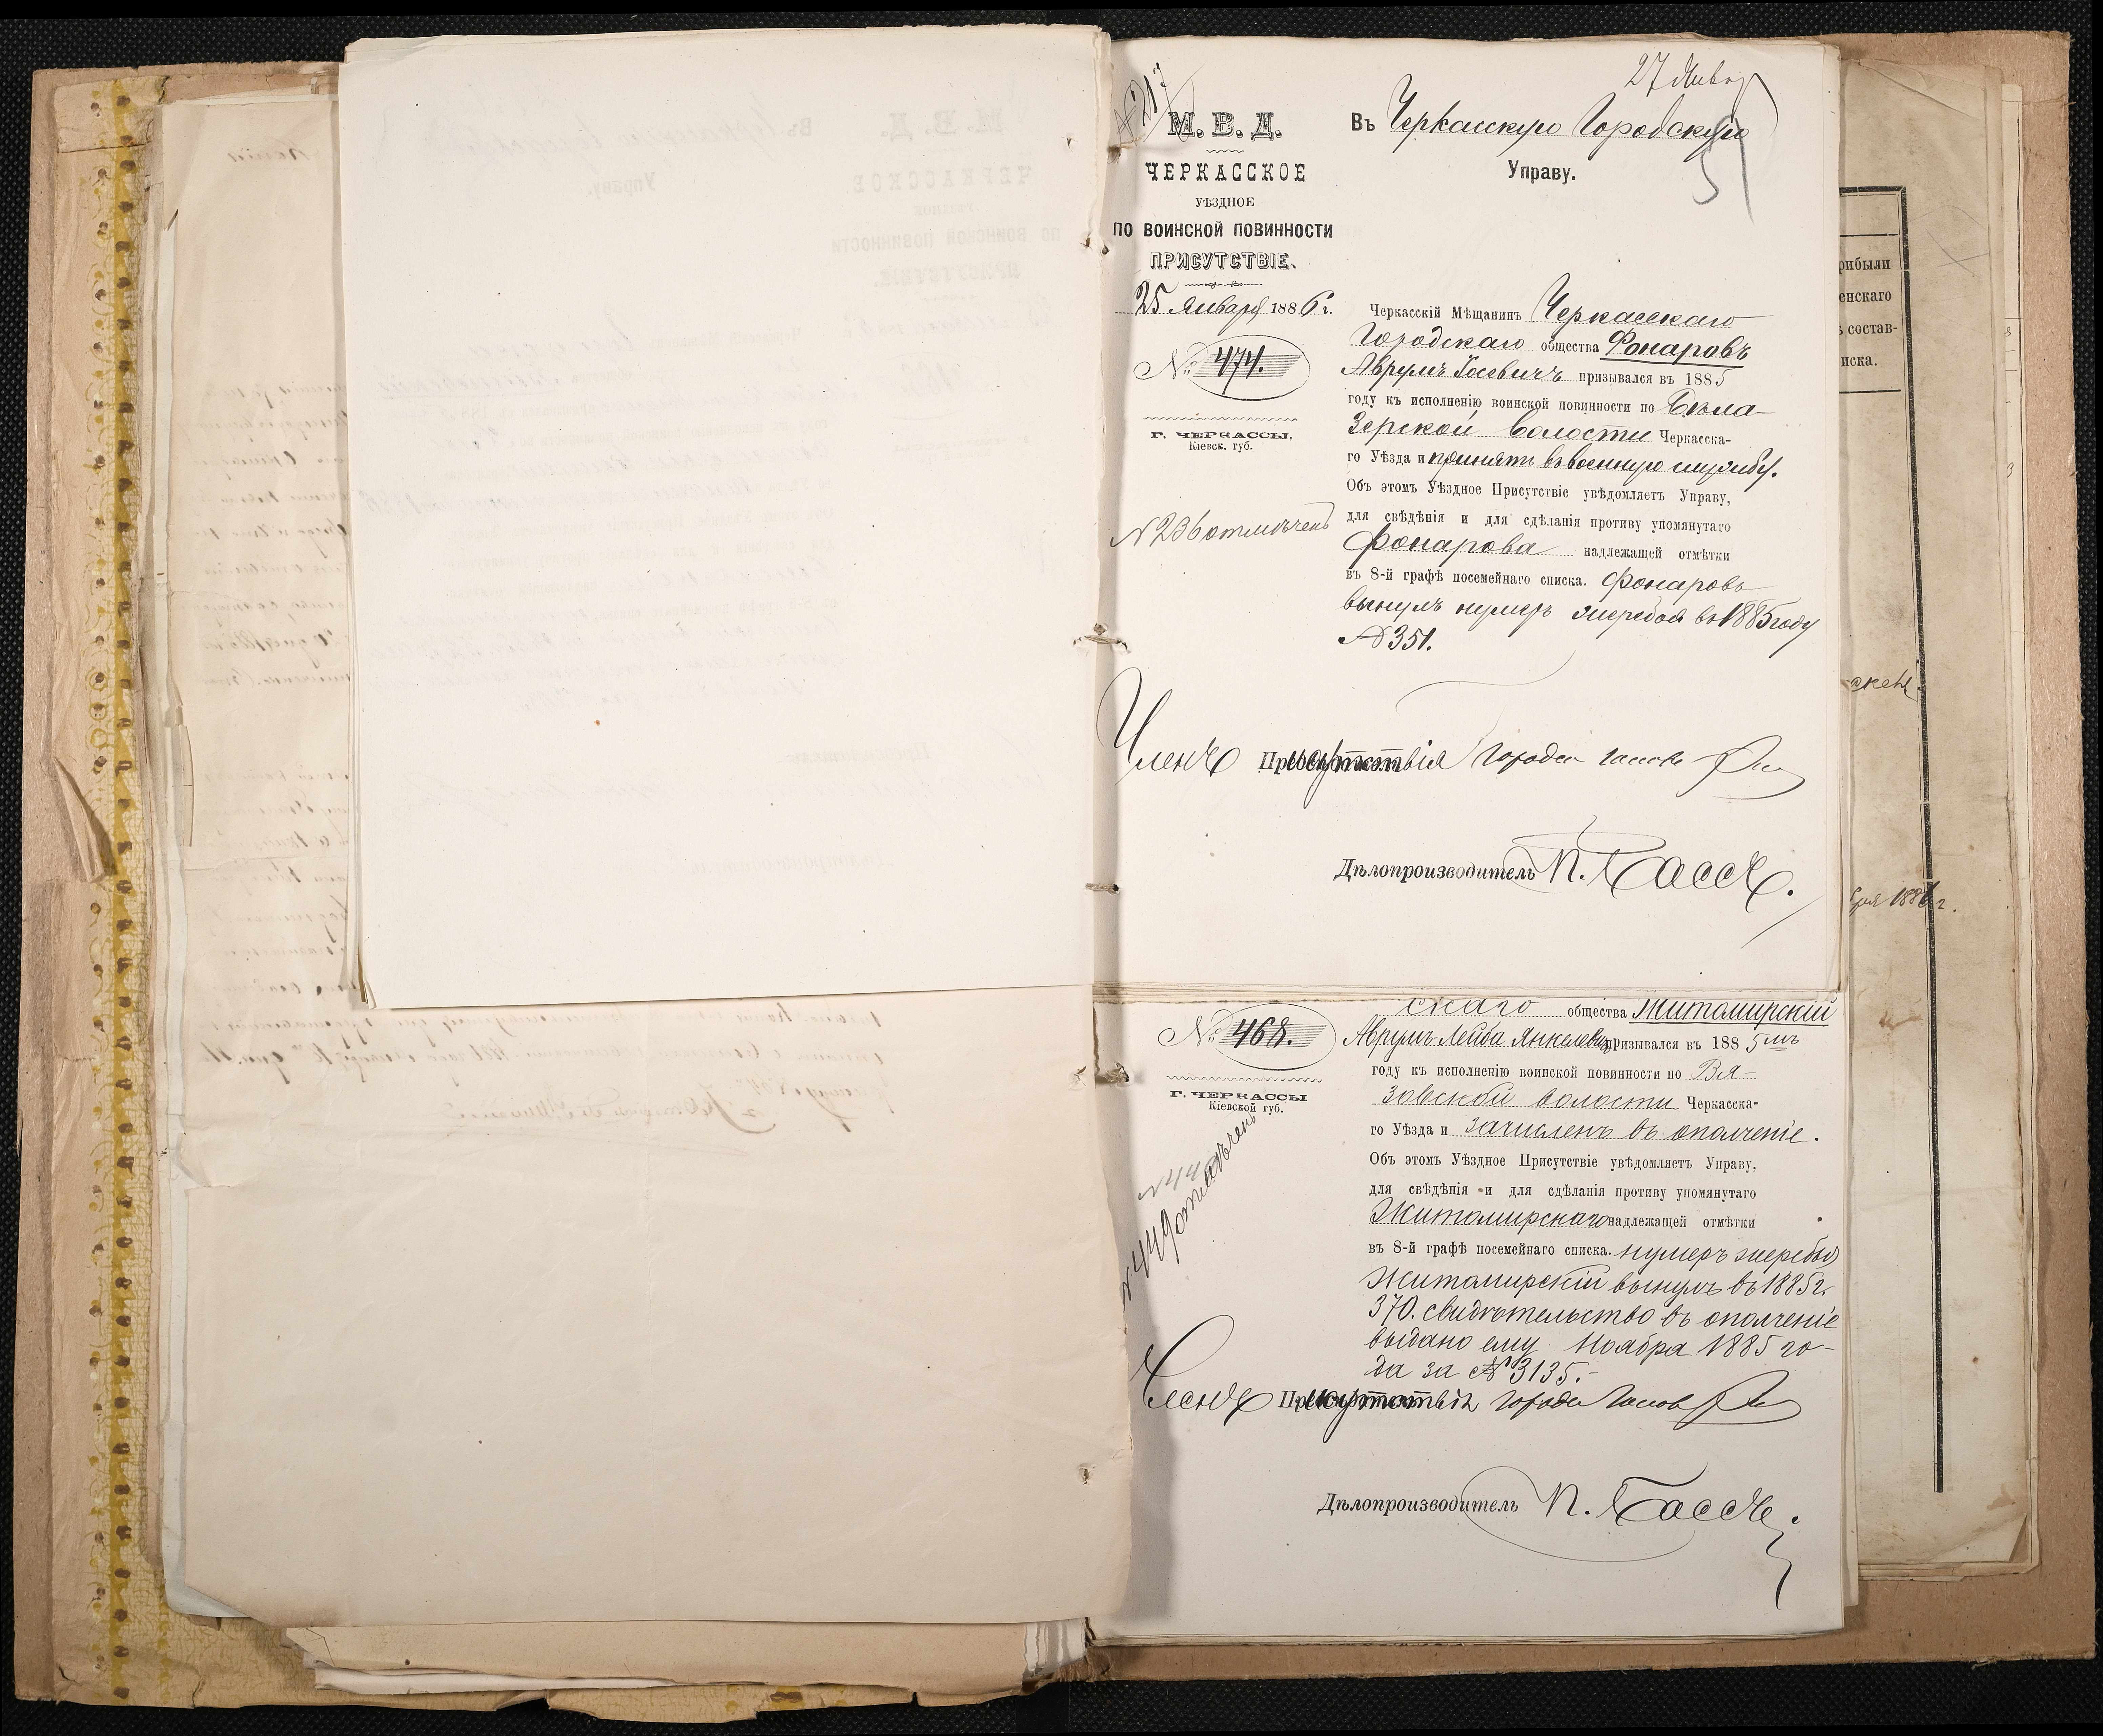 27 Январ
51
№ 217
М. В. Д.
ЧЕРКАССКОЕ
УѢЗДНОЕ
ПО ВОИНСКОЙ ПОВИННОСТИ
ПРИСУТСТВІЕ.
25 Января 1886 г.
№ 474.
Г. ЧЕРКАССЫ,
Кіевск. губ.
№ 236 отмѣченъ
Въ Черкасскую Городскую
Управу.
Черкасскій Мѣщанинъ Черкасскаго
Городскаго общества Фонаровъ
Аврумъ Іосевичъ призывался въ 1885
году къ исполненію воинской повинности по Бѣло-
зерской волости Черкасска-
го Уѣзда и принятъ въ военную службу.
Объ этомъ Уѣздное Присутствіе увѣдомляетъ Управу,
для свѣдѣнія и для сдѣланія противу упомянутаго
Фонарова надлежащей отмѣтки
въ 8-й графѣ посемейнаго списка. Фонаровъ
вынулъ нумеръ жеребья въ 1885 году
№ 351.
Членъ Присутствія Городск.
Дѣлопроизводитель П. Бассъ.
№ 468.
Г. ЧЕРКАССЫ
Кіевской губ.
№ 449 отмѣченъ
скаго общества Житомирскій
Аврумъ-Лейба Янкелевъ призывался въ 1885мъ
году къ исполненію воинской повинности по Вя-
зовской волости Черкасска-
го Уѣзда и зачисленъ въ ополченіе.
Объ этомъ Уѣздное Присутствіе увѣдомляетъ Управу,
для свѣдѣнія и для сдѣланія противу упомянутаго
Житомирскаго надлежащей отмѣтки
въ 8-й графѣ посемейнаго списка. нумеръ жеребья
Житомирскій вынулъ въ 1885 г.
370. свидѣтельство въ ополченіе
выдано ему Ноября 1885 го-
да за № 3135.-
Членъ Присутствія Городск.
Дѣлопроизводитель П. Бассъ.
рибыли
енскаго
ъ состав-
иска.
1886 г.